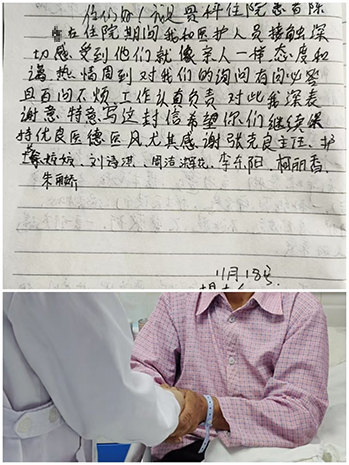 你们好！我是贵科住院患者陈
在住院期间我和医护人员接触深
切感受到他们就像亲人一样态度和
谐热情周到对我们的询问有问必答
且百问不烦工作认真负责对此我深表
谢意特意写这封信希望你们继续保
持优良医德医风尤其感谢张克良主任、护
刘诗淇、周洁、李东阳、柯丽香、
朱丽娇
11月18号